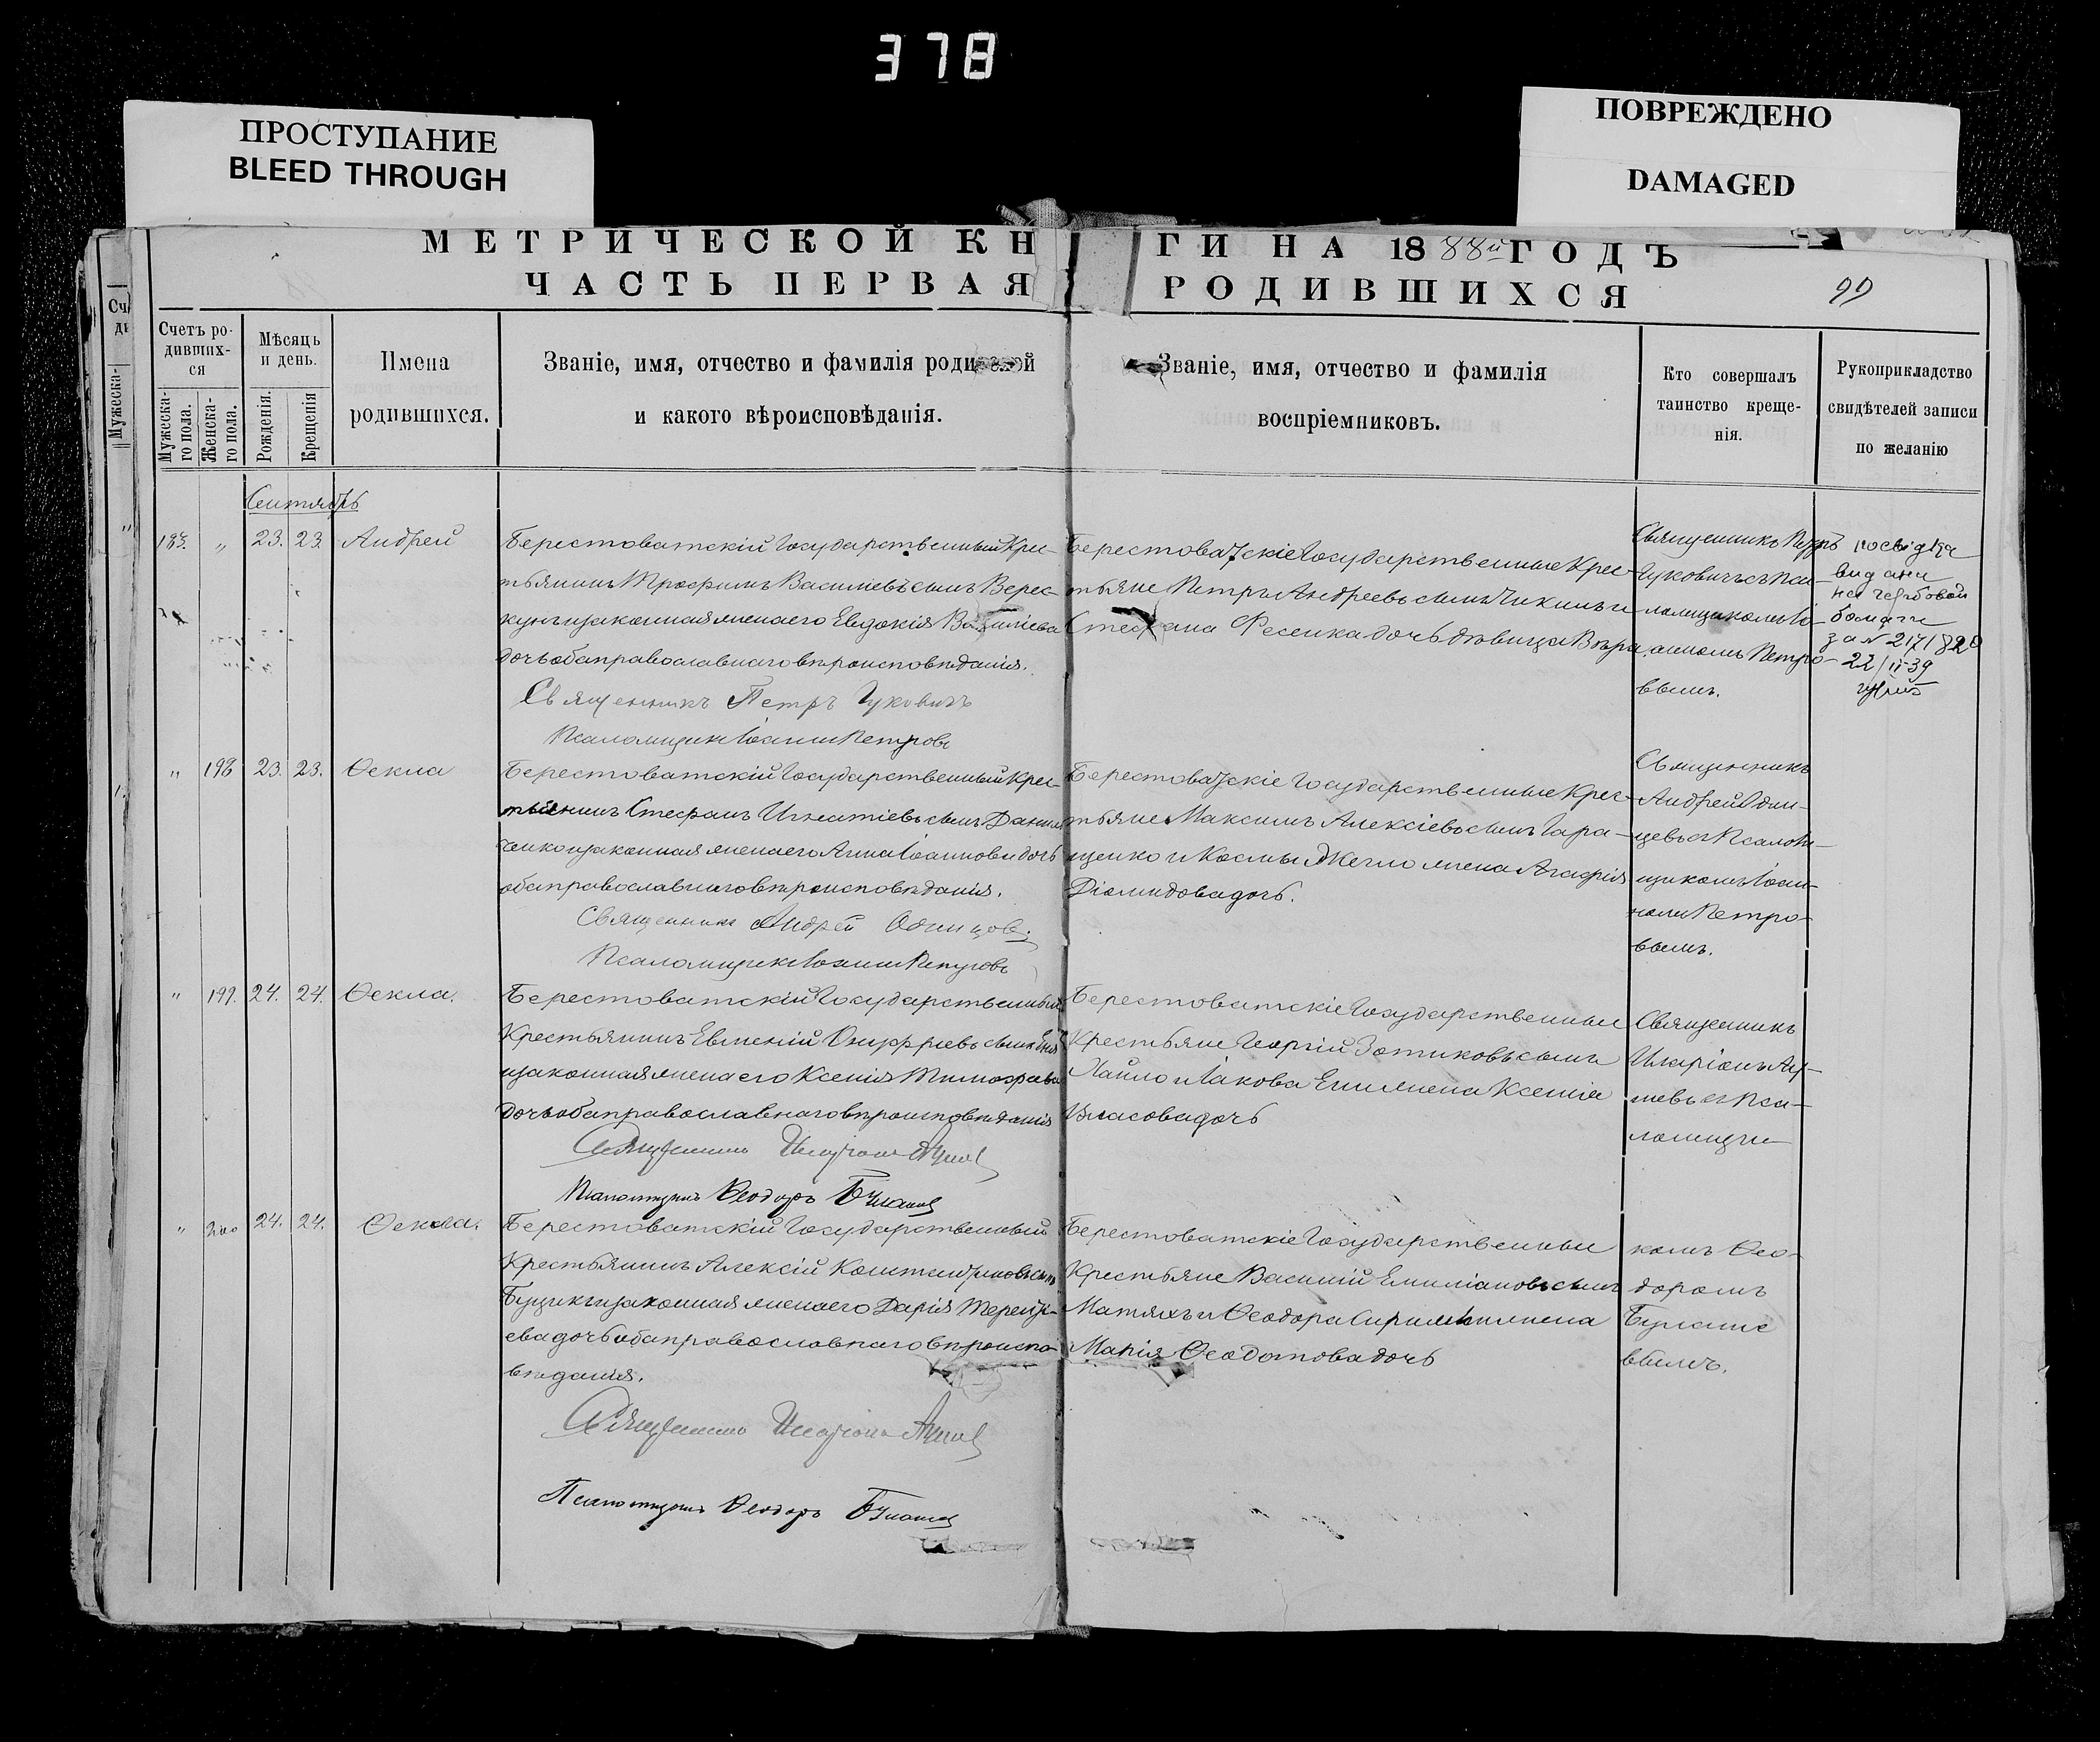 378
ПРОСТУПАНИЕ
BLEED THROUGH
ПОВРЕЖДЕНО
DAMAGED
МЕТРИЧЕСКОЙ КНИГИ НА 1888й ГОДЪ
ЧАСТЬ ПЕРВАЯ РОДИВШИХСЯ
99
Счетъ ро-
дивших-
ся
Мужеска-
го пола.
Женска-
го пола.
Мѣсяцъ
и день.
Рожденія.
Крещенія
Имена
родившихся.
Званіе, имя, отчество и фамилія родителей
и какого вѣроисповѣданія.
Званіе, имя, отчество и фамилія
воспріемниковъ.
Кто совершалъ
таинство креще-
нія.
Рукоприкладство
свидѣтелей записи
по желанію
Сентябрь
" 23. 23. Андрей
Берестоватскій Государственный Крес-
тьянинъ Трофимъ Василіевъ сынъ Верес-
кунъ и законная жена его Евдокія Василіева
дочь оба православнаго вѣроисповѣданія.
Священникъ Петръ Чуковичъ
Псаломщикъ Іоаннъ Петровъ
Берестоватскіе Государственные Крес-
тьяне Петръ Андреевъ сынъ Чикинъ и
Стефана Фесенка дочь дѣвица Вѣра
Священникъ Петръ
Чуковичъ съ Пса-
ломщикомъ Іо-
анномъ Петро-
вымъ.
посвідка
видана
на гербовой
бомаги
за №
22/ІІ-39
" 198 23. 23. Ѳекла
Берестоватскій Государственный Крес-
тьянинъ Стефанъ Игнатіевъ сынъ
и законная жена его Анна Іоаннова дочь
оба православнаго вѣроисповѣданія.
Священникъ Андрей Одинцовъ
Псаломщикъ Іоаннъ Петровъ
Берестоватскіе Государственные Крес-
тьяне Максимъ Алексіевъ сынъ Гара-
щенко и Космы жена Агафія
Діомидова дочь.
Священникъ
Андрей Один-
цевъ съ Псалом-
щикомъ Іоан-
номъ Петро-
вымъ.
" 199. 24. 24. Ѳекла.
Берестоватскій Государственный
Крестьянинъ Евменій Онуфріевъ сынъ
и законная жена его Ксенія Тимофеева
дочь оба православнаго вѣроисповѣданія
Священникъ Иларіонъ
Псаломщикъ Ѳеодоръ
Берестоватскіе Государственные
Крестьяне Георгій Зотиковъ сынъ
и Іакова жена Ксенія
Власова дочь
Священникъ
Иларіонъ
съ Пса-
ломщи-
" 200 24. 24. Ѳекла.
Берестоватскій Государственный
Крестьянинъ Алексій Константиновъ сынъ
и законная жена его Дарія Терентіева
дочь оба православнаго вѣроиспо-
вѣданія.
Священникъ Иларіонъ
Псаломщикъ Ѳеодоръ
Берестоватскіе Государственные
Крестьяне Василій Емиліановъ сынъ
Матяхъ и Ѳеодора жена
Марія Ѳеодотова дочь
комъ Ѳео-
доромъ
вымъ.